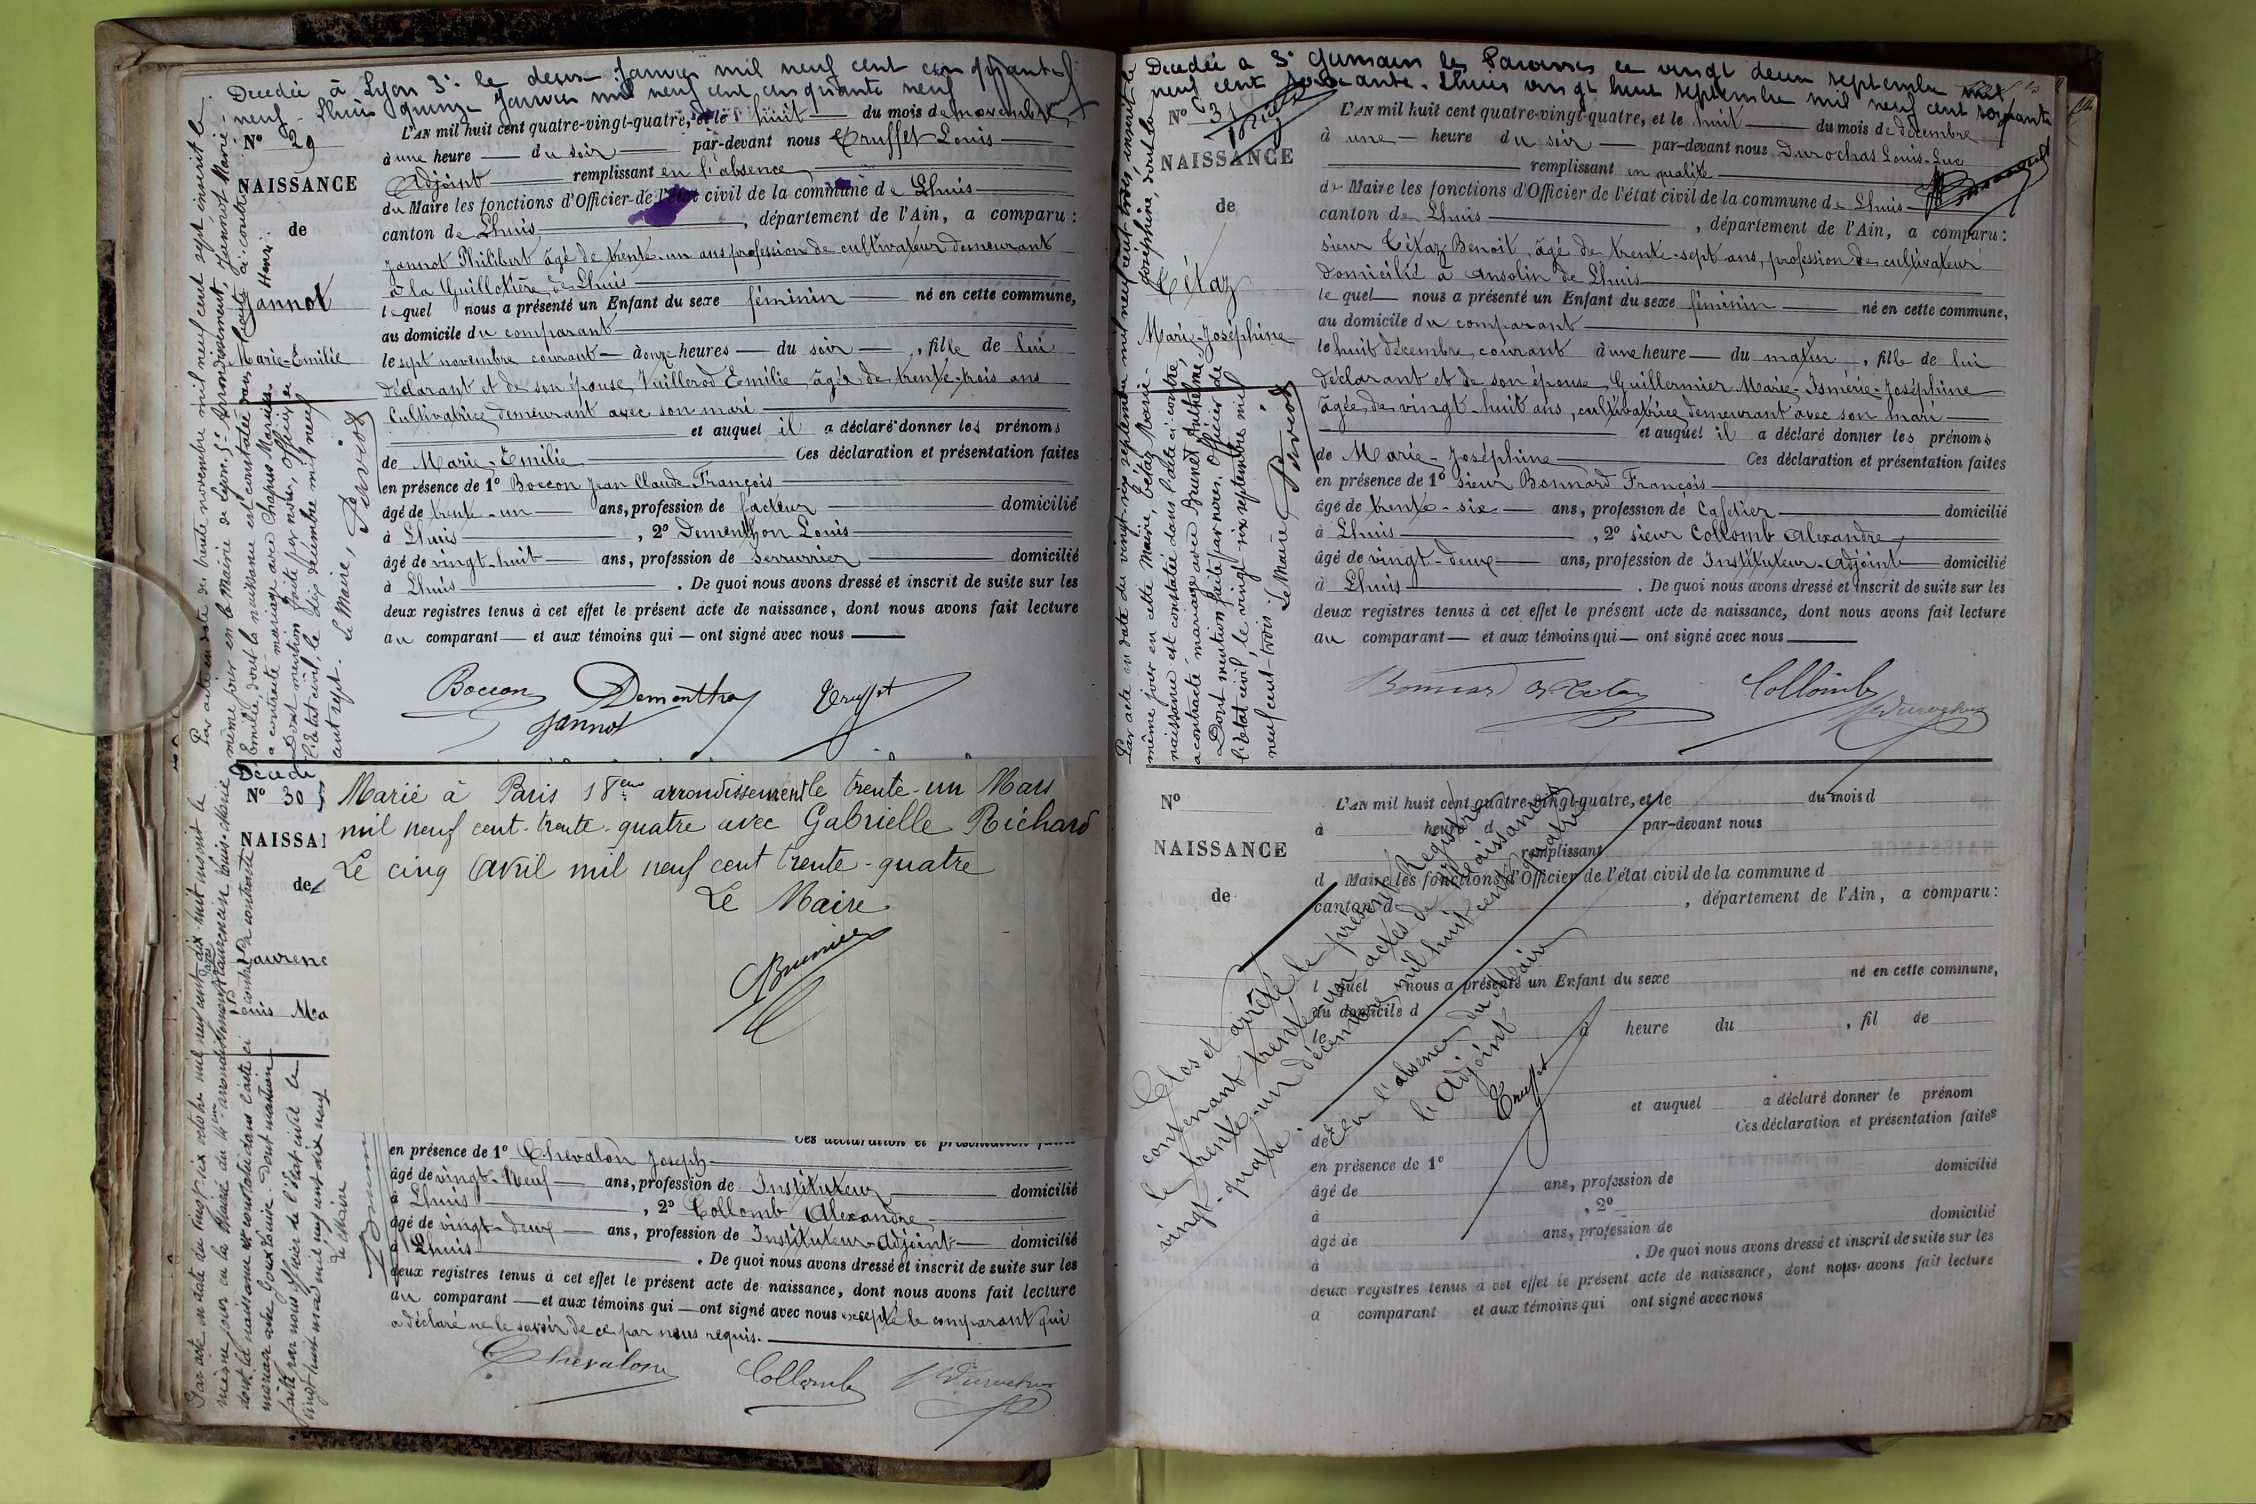 Décédée à Lyon 3e le deux janvier mil neuf cent cinquante
neuf - Lhuis quinze janvier mil neuf cent cinquante neuf
No 29
NAISSANCE
de
Jannot
Marie-Emilie
L'AN mil huit cent quatre-vingt-quatre, et le huit du mois de novembre
à une heure du soir par-devant nous Truffet Louis
Adjoint remplissant en l'absence
du Maire les fonctions d'Officier de l'état civil de la commune de Lhuis
canton de Lhuis , département de l'Ain, a comparu :
Jannot Philibert âgé de trente-un ans profession de cultivateur demeurant
à la Guilletière de Lhuis
lequel nous a présenté un Enfant du sexe féminin né en cette commune,
au domicile du comparant
le sept novembre courant à onze heures du soir , fille de lui
déclarant et de son épouse Vuillerod Emilie âgée de trente-trois ans
Cultivatrice demeurant avec son mari
et auquel il a déclaré donner les prénoms
de Marie-Emilie Ces déclaration et présentation faites
en présence de 1o Boccon Jean Claude François
âgé de trente-un ans, profession de facteur domicilié
à Lhuis , 2o Dementhon Louis
âgé de vingt-huit ans, profession de serrurier domicilié
à Lhuis . De quoi nous avons dressé et inscrit de suite sur les
deux registres tenus à cet effet le présent acte de naissance, dont nous avons fait lecture
au comparant et aux témoins qui ont signé avec nous
Boccon Dementhon Truffet
Jannot
Par acte en date du trente novembre mil neuf cent sept inscrit le
même jour en la Mairie de Lyon, 5e Arrondissement, Jannot Marie-
Emilie, dont la naissance est constatée dans l'acte ci-contre
a contracté mariage avec Chapus Marius Henri.
Dont mention faite par nous, Officier de
l'état civil, le dix décembre mil neuf
cent sept. Le Maire,
Décédé
No 30
NAISSA
de
Laurenc
Louis Ma
Marié à Paris 18eme arrondissement le trente-un Mars
mil neuf cent-trente-quatre avec Gabrielle Richard
Le cinq Avril mil neuf cent trente-quatre
Le Maire
en présence de 1o Chevalon Joseph
âgé de vingt-neuf ans, profession de Instituteur domicilié
à Lhuis , 2o Collomb Alexandre
âgé de vingt-deux ans, profession de Instituteur-adjoint domicilié
à Lhuis . De quoi nous avons dressé et inscrit de suite sur les
deux registres tenus à cet effet le présent acte de naissance, dont nous avons fait lecture
au comparant et aux témoins qui ont signé avec nous excepté le comparant qui
a déclaré ne le savoir de ce par nous requis.
Chevalon Collomb Durochat
Le Maire
Décédée à St Germain les Paroisses le vingt deux septembre mil
neuf cent soixante. Lhuis vingt huit septembre mil neuf cent soixante
No 31
NAISSANCE
de
Tétaz
Marie-Joséphine
L'AN mil huit cent quatre-vingt-quatre, et le huit du mois de décembre
à une heure du soir par-devant nous Durochat Louis-Luc
remplissant en qualité
de Maire les fonctions d'Officier de l'état civil de la commune de Lhuis
canton de Lhuis , département de l'Ain, a comparu :
sieur Tétaz Benoit, âgé de trente-sept ans, profession de cultivateur
domicilié à Ansolin de Lhuis
lequel nous a présenté un Enfant du sexe féminin né en cette commune,
au domicile du comparant
le huit décembre, courant à une heure du matin , fille de lui
déclarant et de son épouse Guillermier Marie-Ismérie-Joséphine
âgée de vingt-huit ans, cultivatrice demeurant avec son mari
et auquel il a déclaré donner les prénoms
de Marie-Joséphine Ces déclaration et présentation faites
en présence de 1o sieur Bonnard François
âgé de trente-six ans, profession de Cafetier domicilié
à Lhuis , 2o sieur Collomb Alexandre
âgé de vingt-deux ans, profession de Instituteur-Adjoint domicilié
à Lhuis . De quoi nous avons dressé et inscrit de suite sur les
deux registres tenus à cet effet le présent acte de naissance, dont nous avons fait lecture
au comparant et aux témoins qui ont signé avec nous
Bonnard B Tétaz Collomb
Durochat
Par acte en date du vingt-six septembre mil neuf cent trois, inscrit le
même jour en cette Mairie, Tétaz Marie-Joséphine dont la
naissance est constatée dans l'acte ci-contre,
a contracté mariage avec Brunet Anthelme,
Dont mention faite par nous, Officier de
l'état civil, le vingt-six septembre mil
neuf cent-trois. Le Maire
No
NAISSANCE
de
L'AN mil huit cent quatre-vingt-quatre, et le du mois d
à heure d par-devant nous
remplissant
d Maire les fonctions d'Officier de l'état civil de la commune d
canton d , département de l'Ain, a comparu :
l quel nous a présenté un Enfant du sexe né en cette commune,
au domicile d
le à heure du , fil de
et auquel a déclaré donner le prénom
de Ces déclaration et présentation faites
en présence de 1o
âgé de ans, profession de domicilié
à , 2o
âgé de ans, profession de domicilié
à . De quoi nous avons dressé et inscrit de suite sur les
deux registres tenus à cet effet le présent acte de naissance, dont nous avons fait lecture
a comparant et aux témoins qui ont signé avec nous
Clos et arrêté le présent Registre
contenant trente-un actes de Naissances
le trente-un décembre mil huit cent quatre
vingt-quatre.
En l'absence du Maire
l'Adjoint
Truffet